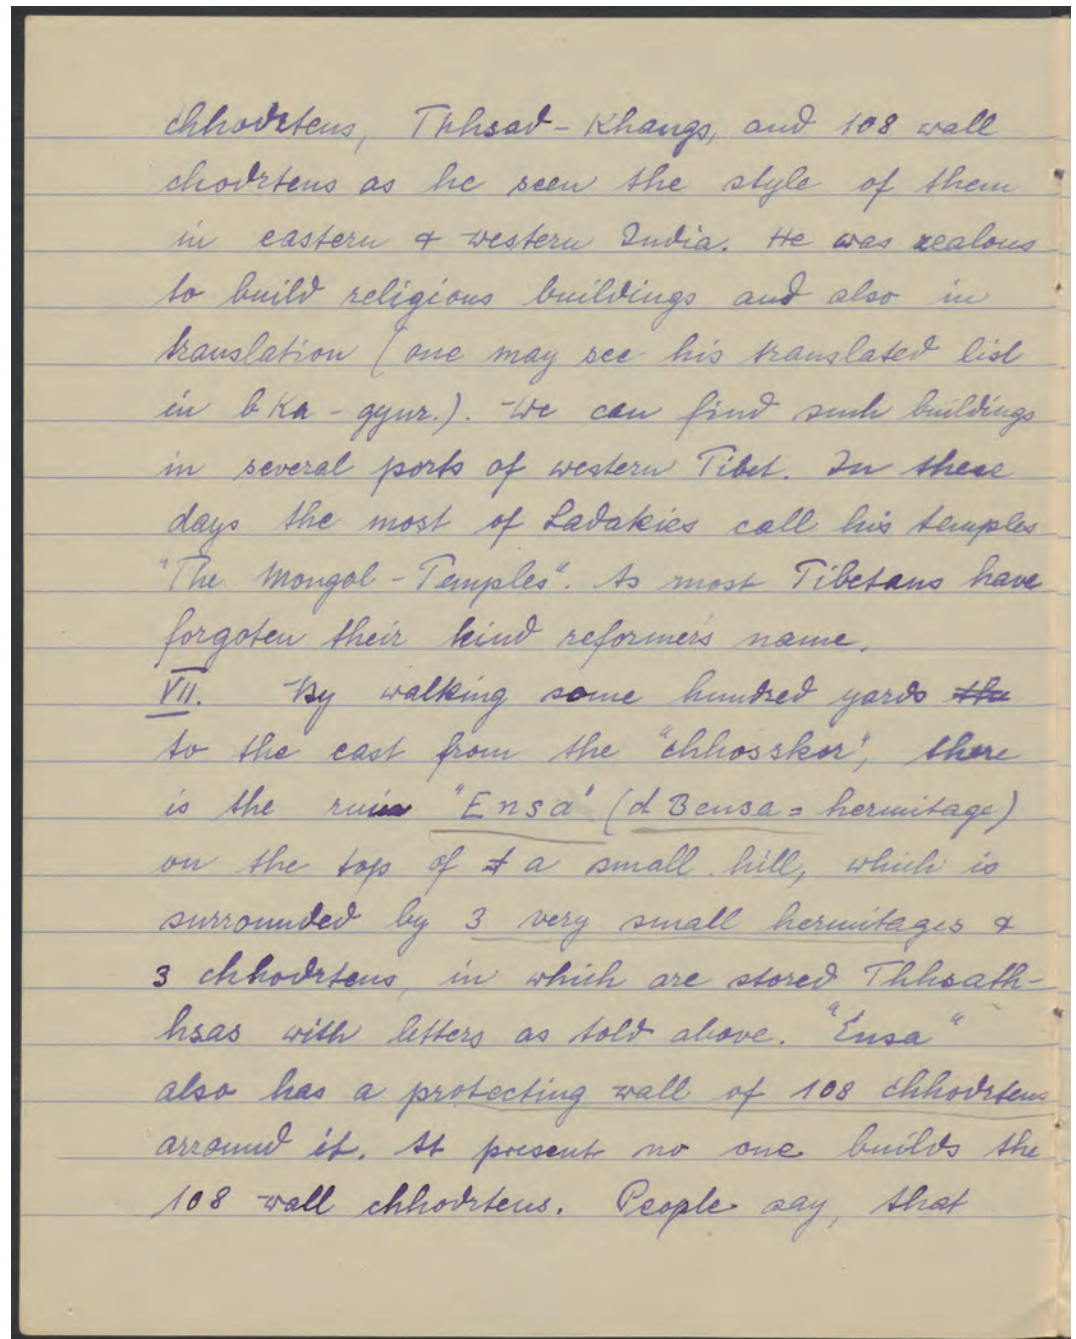 chhodrtens, Thhsad-Khangs, and 108 wall
chodrtens as he seen the style of them
in eastern & western India. He was zealous
to build religious buildings and also in
translation (one may see his translated list
in bKa-gyur.). We can find such buildings
in several parts of western Tibet. In these
days the most of Ladakies call his temples
"The Mongol-Temples". As most Tibetans have
forgoten their kind reformers name.
VII. By walking some hundred yards the
to the east from the "chhosskor", there
is the ruin "Ensa" (dBensa = hermitage)
on the top of a small hill, which is
surrounded by 3 very small hermitages &
3 chhodrtens, in which are stored Thhsath-
hsas with letters as told above. "Ensa"
also has a protecting wall of 108 chhodrtens
arround it. At present no one builds the
108 wall chhodrtens. People say, that